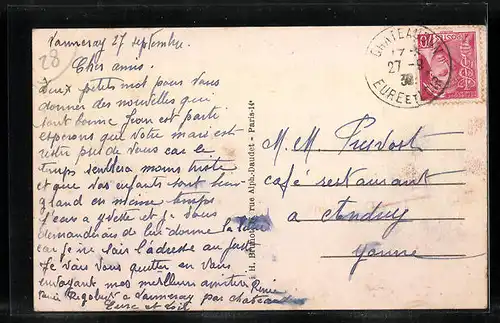 Vanneray 27 septembre
28
Cher amis.
Deux petits mot pour vous
donner des nouvelles qui
sont bonne Jean est parti
esperons que votre mari est
rester pres de vous car le
temps semblera moins triste
et que vos enfants sont bien
gland en meme temps
a Yvette et je vous
demanderais de lui donne la lettre
car je ne sait l'adresse au juste
Je vais vous quitter en vous
envoyant mos meilleurs amitiés Renée
Rigobert a Vanneray par Chateaudun
Eure et Loir
H. rue Alph.-Daudet - Paris-14e
CHATEAUDUN
27 -9
38
EURE ET LOIR
POSTES
M. M. Prevost
café restaurant
a
Yonne